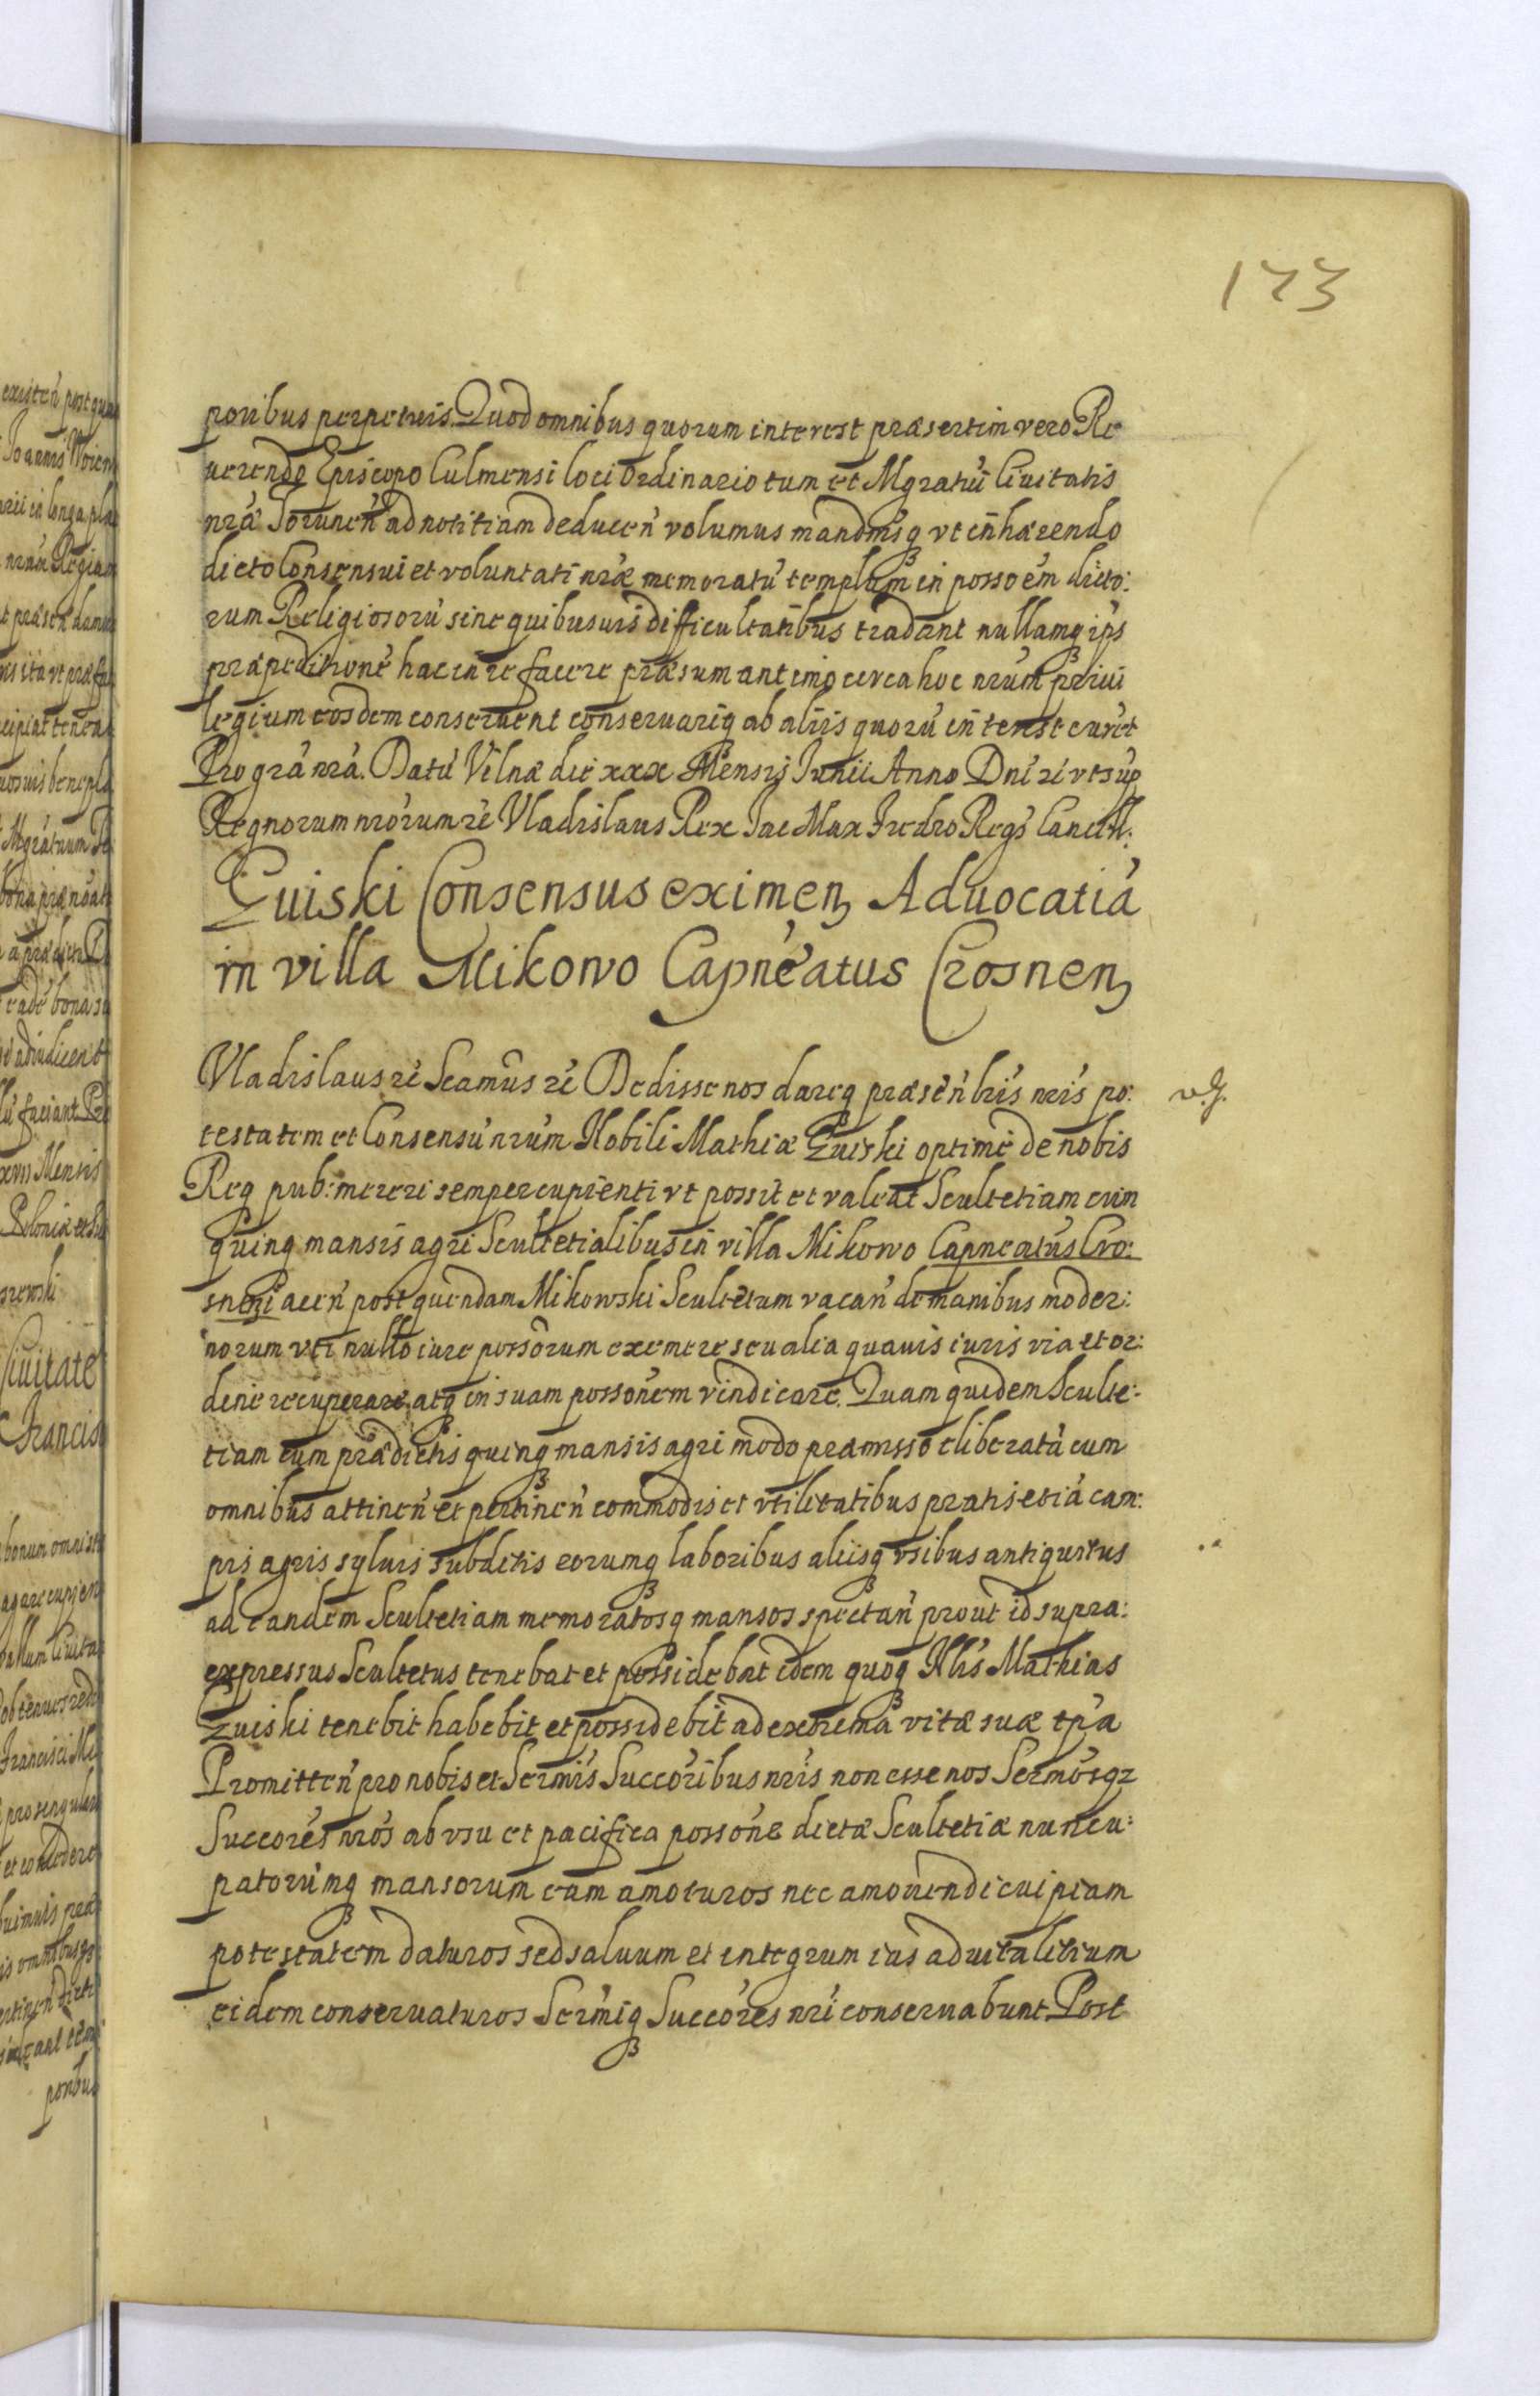 173
poribus perpetuis. Quod omnibus quorum interest præsertim vero Re
uerendo Episcopo Culmensi loci Ordinario tum et Mgratui Ciuitatis
nrae Torunen ad notitiam deducen volumus mandmusq vt inhærendo
dicto Consensui et voluntati nræ memoratu templum in possoem dicto:
rum Religiosoru sine quibusuis difficultatibus tradant nullamq ips
præpeditione hac in re facere præsumant imo circa hoc nrum priui
legium eosdem conseruent conseruariq ab aliis quoru interest curet
Pro gra nra. Datu Vilnæ die xxx Mensis Junii Anno Dni zc vt sup
Regnorum nrorum zc Vladislaus Rex Jac Max Fredro Regs Cancell:
Zuiski Consensus eximen Aduocatia
in villa Mikowo Capneatus Crosnen
Vladislaus zc Seamus zc Dedisse nos dareq præsen lris nris po:
testatem et Consensu nrum Nobili Mathiæ Zuiski optime de nobis
Req pub: mereri semper cupienti vt possit et valeat Scultetiam cum
quinq mansis agri Scultetialibus in villa Mikowo Capneatus Cro:
snen acen post quendam Mikowski Scultetum vacan de manibus moder:
norum vti nullo iure possorum eximere seu alia quauis iuris via et or:
dine recuperare atq in suam possonem vindicare. Quam quidem Sculte:
tiam cum prædictis quinq mansis agri modo præmisso eliberata cum
omnibus attinen et pertinen commodis et vtilitatibus pratis etia cam:
pis agris syluis subditis eorumq laboribus aliisq vsibus antiquitus
ad eandem Scultetiam memoratosq mansos spectan prout id supra:
expressus Scultetus tenebat et possidebat idem quoq Nlis Mathias
Zuiski tenebit habebit et possidebit ad extrema vitæ suæ tpa
Promitten pro nobis et Sermis Succoribus nris non esse nos Sermosqz
Succores nros ab vsu et pacifica possone dictæ Scultetiæ nuncu:
patorumq mansorum eum amoturos nec amouendi cuipiam
potestatem daturos sed saluum et integrum ius aduitalitium
eidem conseruaturos Sermiq Succores nri conseruabunt Post